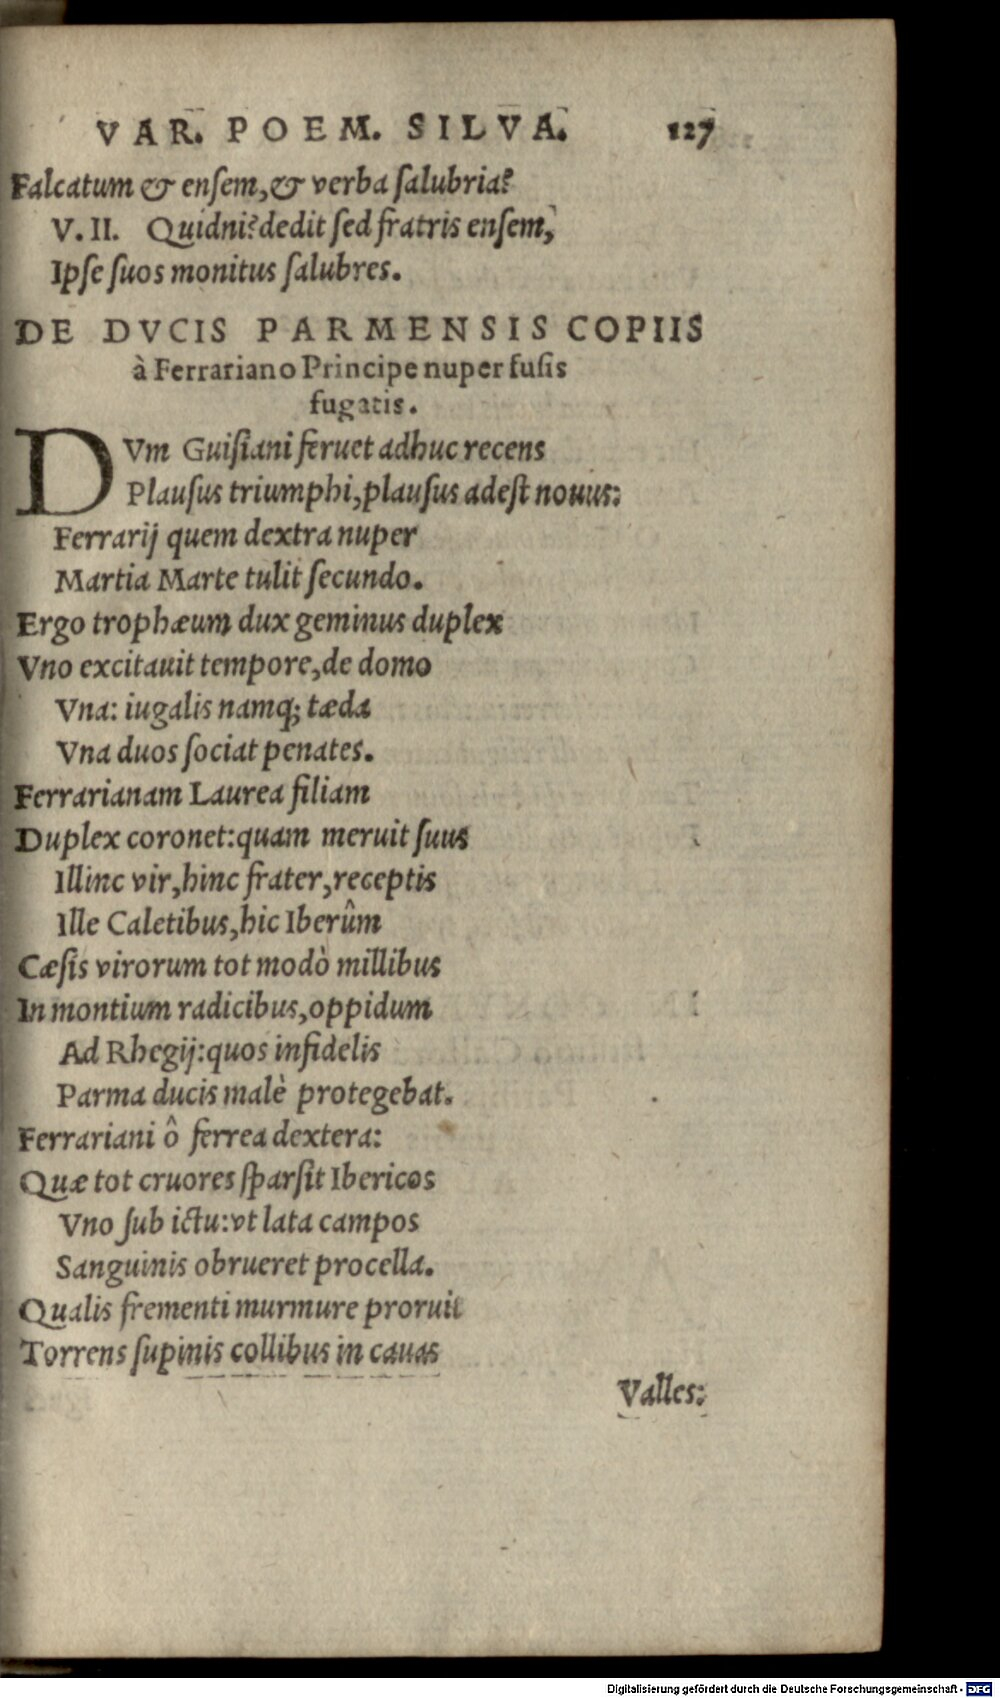 VAR. POEM. SILVA. 127
Falcatum & ensem, & verba salubria?
V. II. Quidni? dedit sed fratris ensem,
Ipse suos monitus salubres.
DE DVCIS PARMENSIS COPIIS
à Ferrariano Principe nuper fusis
fugatis.
DVm Guisiani feruet adhuc recens
Plausus triumphi, plausus adest nouus:
Ferrarij quem dextra nuper
Martia Marte tulit secundo.
Ergo trophæum dux geminus duplex
Vno excitauit tempore, de domo
Vna: iugalis namq; tæda
Vna duos sociat penates.
Ferrarianam Laurea filiam
Duplex coronet: quam meruit suus
Illinc vir, hinc frater, receptis
Ille Caletibus, hic Iberûm
Cæsis virorum tot modò millibus
In montium radicibus, oppidum
Ad Rhegij: quos infidelis
Parma ducis malè protegebat.
Ferrariani ô ferrea dextera:
Quæ tot cruores sparsit Ibericos
Vno sub ictu: vt lata campos
Sanguinis obrueret procella.
Qualis frementi murmure proruit
Torrens supinis collibus in cauas
Valles:
Digitalisierung gefördert durch die Deutsche Forschungsgemeinschaft - DFG